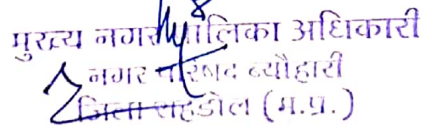 मुख्य नगर पालिका अधिकारी
नगर परिषद ब्यौहारी
जिला शहडोल (म.प्र.)